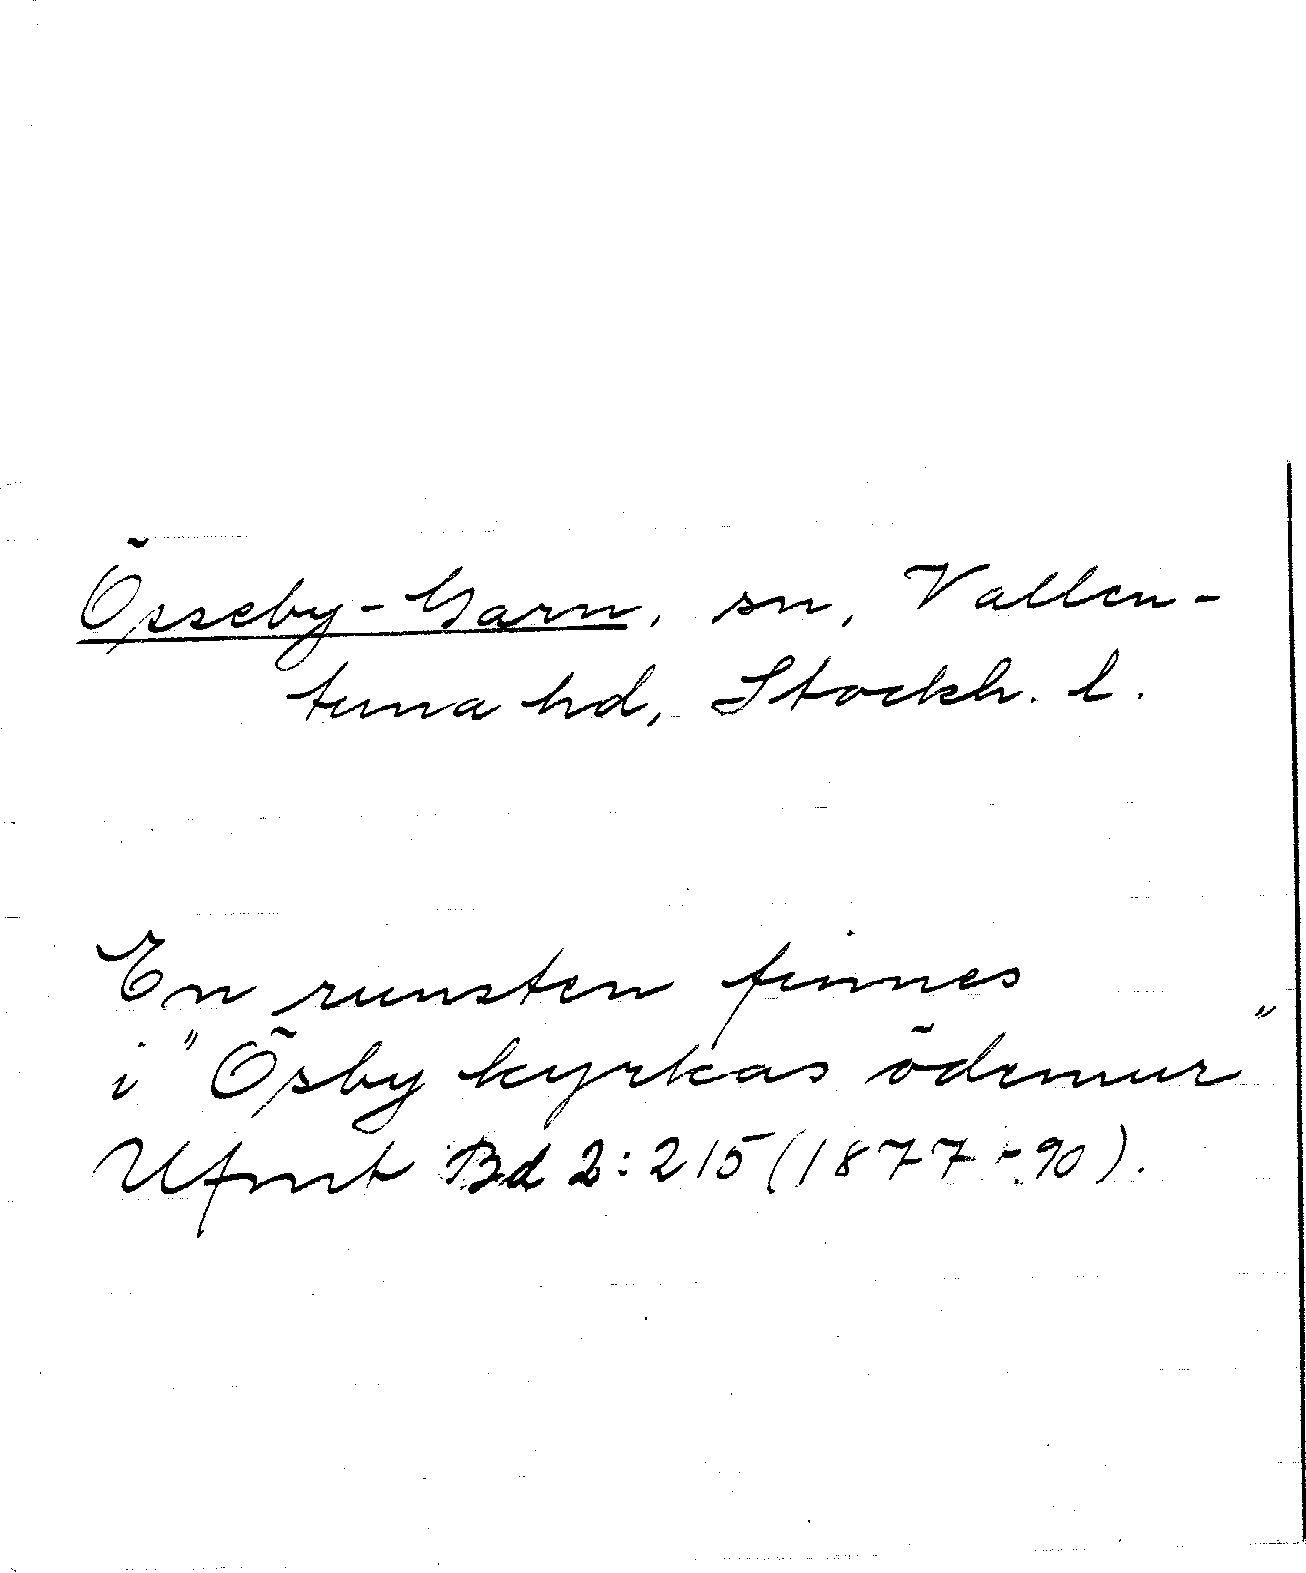 Össeby-Garn, sn, Vallen-
tuna hd, Stockh. l.
En runsten finnes
i "Ösby kyrkas ödemur"
Ufmt Bd 2:215 (1877-90).